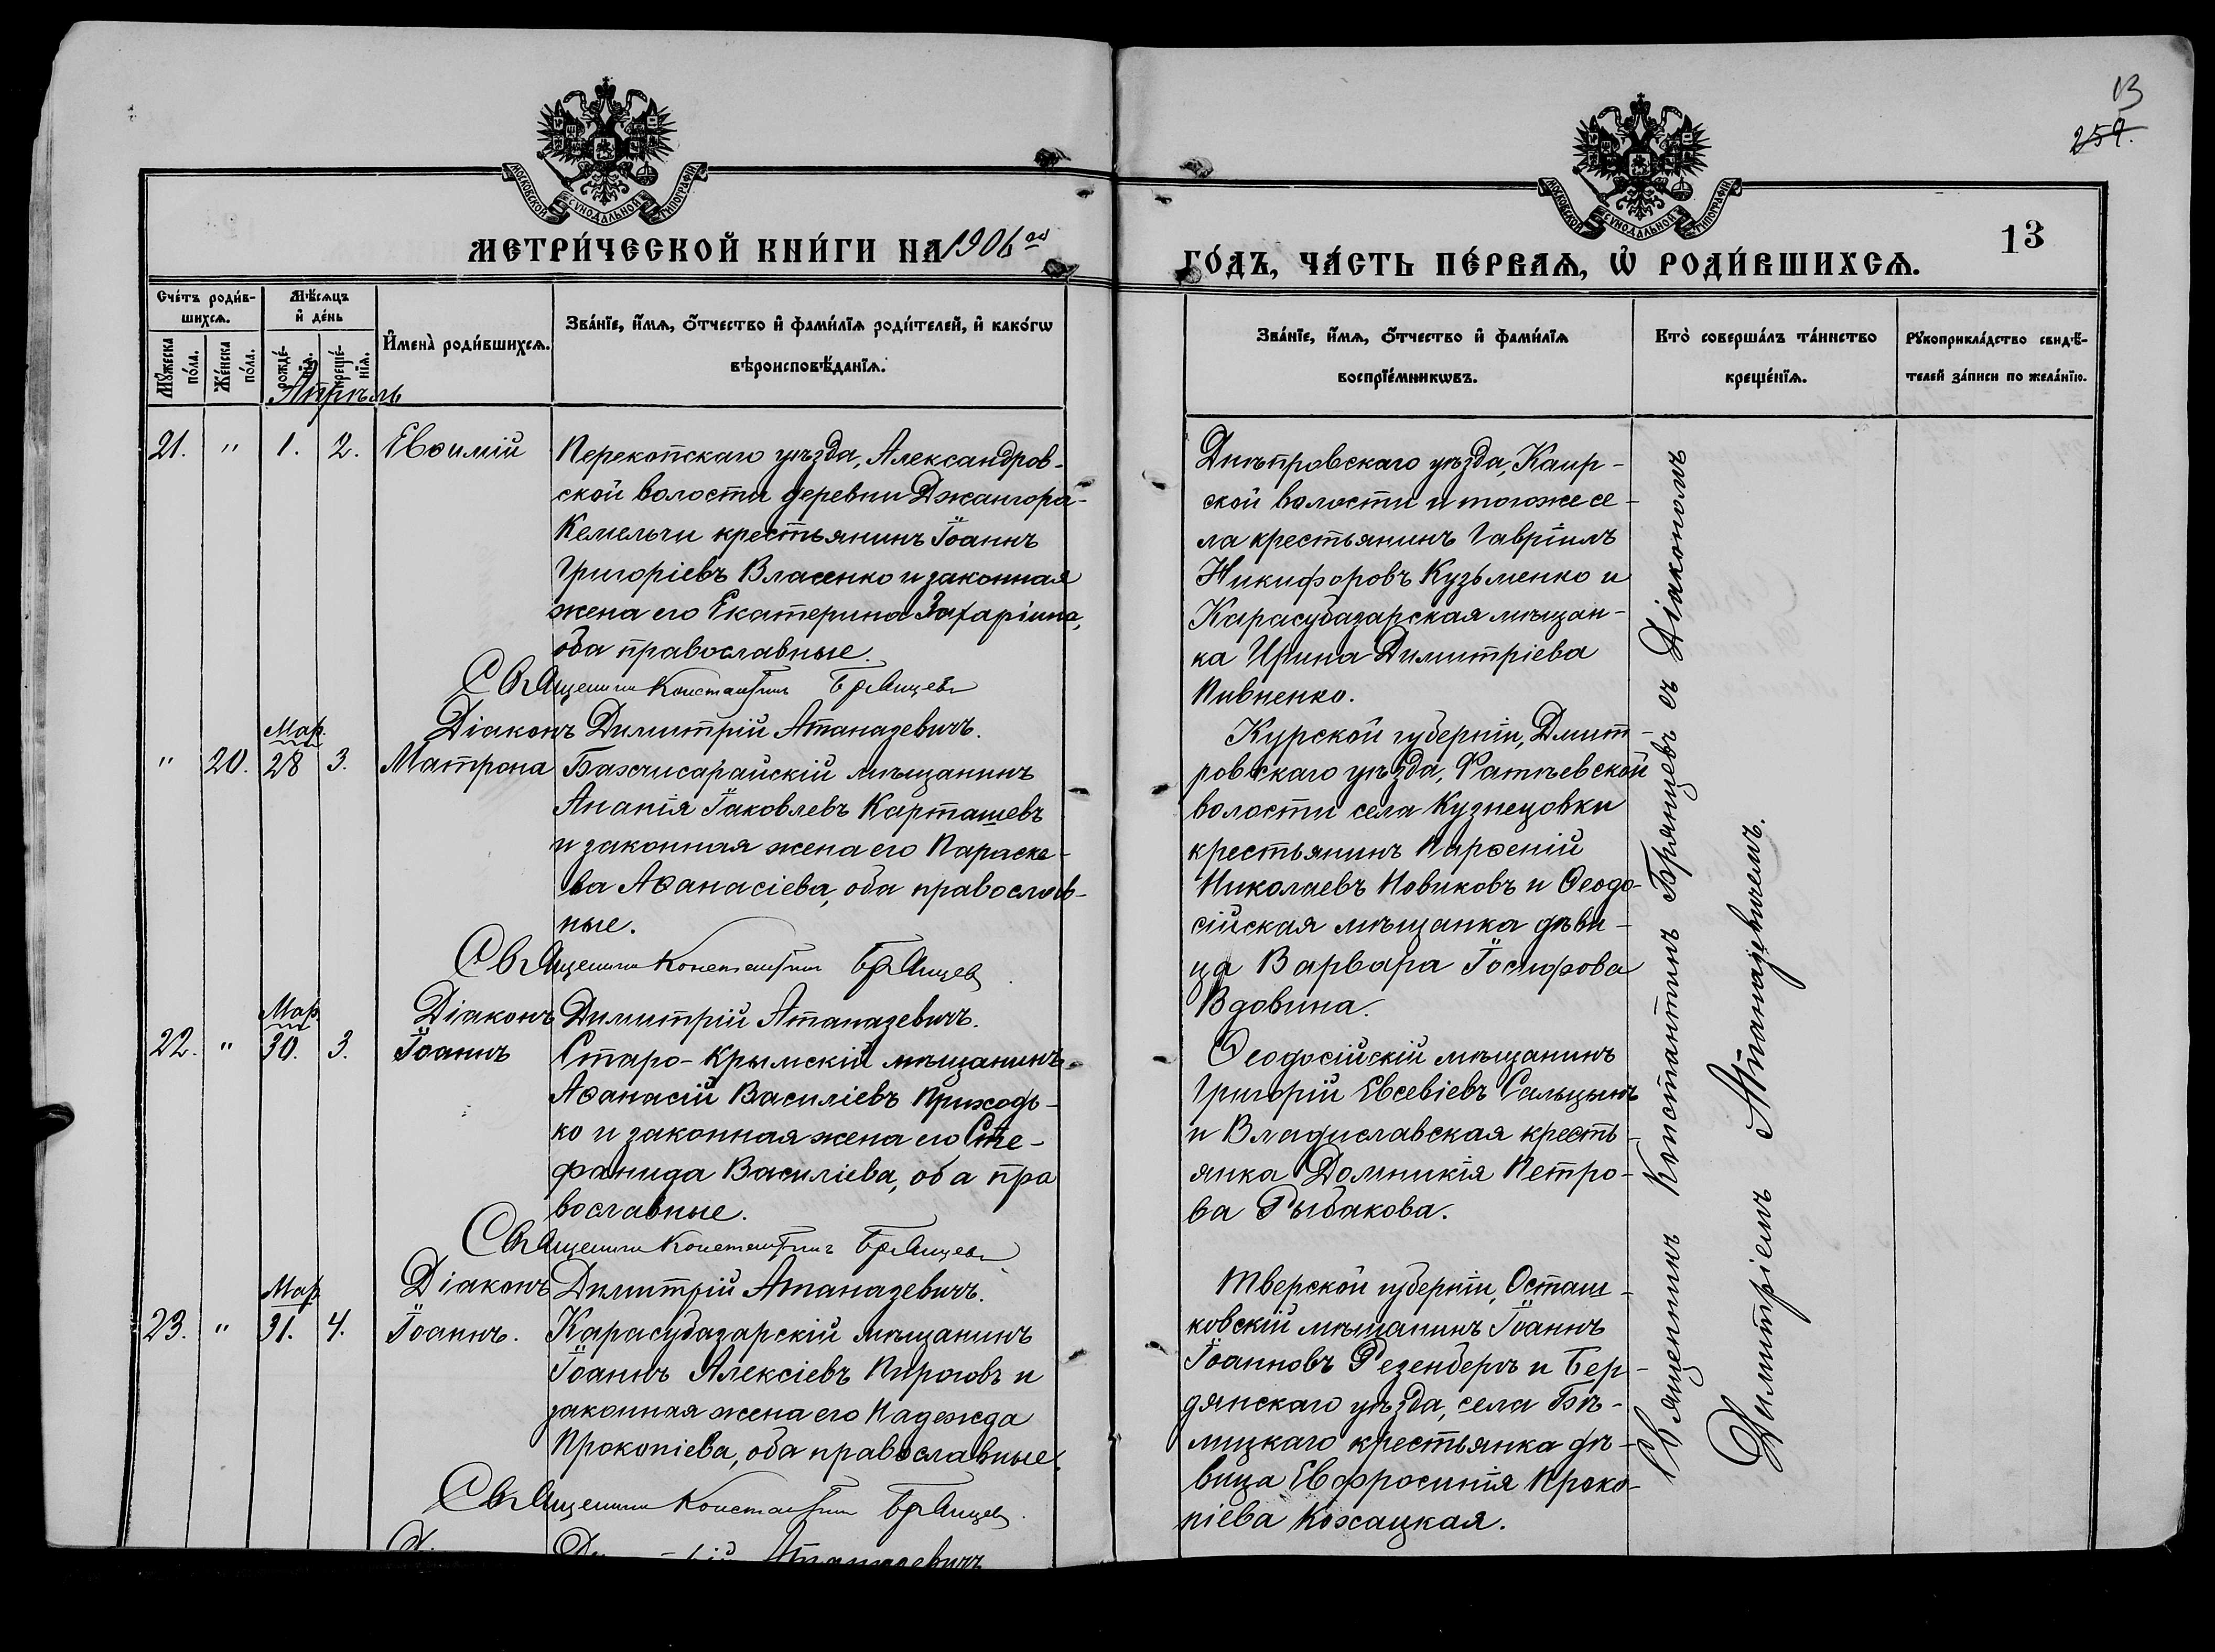 13
259.
МОСКОВСКОЙ СѴНОДАЛЬНОЙ ТИПОГРАФІИ
МОСКОВСКОЙ СѴНОДАЛЬНОЙ ТИПОГРАФІИ
МЕТРИ́ЧЕСКОЙ КНИ́ГИ НА 1906 ой
ГО́ДЪ, ЧА́СТЬ ПЕ́РВАѦ, Ѡ҆ РОДИ́ВШИХСѦ.
13
Сче́тъ роди́в-
шихсѧ.
Мꙋ́жеска по́ла.
Же́нска по́ла.
Мѣ́сѧцъ
и҆ де́нь
рожде́-
нїѧ.
креще́-
нїѧ.
И҆мена̀ роди́вшихсѧ.
Зва́нїе, и҆́мѧ, ѻ҆́тчество и҆ фами́лїѧ роди́телей, и҆ како́гѡ
вѣроисповѣ́данїѧ.
Зва́нїе, и҆́мѧ, ѻ҆́тчество и҆ фами́лїѧ
воспрїе́мникѡвъ.
Кто̀ соверша́лъ та́инство
креще́нїѧ.
Рꙋкоприкла́дство свидѣ́-
телей за́писи по жела́нїю.
Апрѣль
21. " 1. 2. Евѳимій
Перекопскаго уѣзда, Александров-
ской волости деревни Джангора-
Кемельчи крестьянинъ Іоаннъ
Григоріевъ Власенко и законная
жена его Екатерина Захаріина,
оба православные.
Священникъ Константинъ Брянцевъ
Діаконъ Димитрій Атаназевичъ.
Днѣпровскаго уѣзда, Каир-
ской волости и тогоже се-
ла крестьянинъ Гавріилъ
Никифоровъ Кузьменко и
Карасубазарская мѣщан-
ка Ирина Димитріева
Пивненко.
Мар.
" 20. 28 3. Матрона
Бахчисарайскій мѣщанинъ
Ананія Іаковлевъ Карташевъ
и законная жена его Параске-
ва Аѳанасіева, оба православ-
ные.
Священникъ Константинъ Брянцевъ
Діаконъ Димитрій Атаназевичъ.
Курской губерніи, Дмит-
ровскаго уѣзда, Фатѣевской
волости села Кузнецовки
крестьянинъ Парѳеній
Николаевъ Новиковъ и Ѳеодо-
сійская мѣщанка дѣви-
ца Варвара Іосифова
Вдовина.
Мар.
22. " 30. 3. Іоаннъ
Старо-Крымскій мѣщанинъ
Аѳанасій Василіевъ Приходь-
ко и законная жена его Сте-
фанида Василіева, оба пра
вославные.
Священникъ Константинъ Брянцевъ
Діаконъ Димитрій Атаназевичъ.
Ѳеодосійскій мѣщанинъ
Григорій Евсевіевъ Сальцынъ
и Владиславская кресть-
янка Домникія Петро-
ва Рыбакова.
Мар
23. " 31. 4. Іоаннъ.
Карасубазарскій мѣщанинъ
Іоаннъ Алексіевъ Пироговъ и
законная жена его Надежда
Прокопіева, оба православные.
Священникъ Константинъ Брянцевъ.
Атаназевичъ
Тверской губерніи, Осташ-
ковскій мѣщанинъ Іоаннъ
Іоанновъ Резенбергъ и Бер-
дянскаго уѣзда, села Бѣ-
лицкаго крестьянка дѣ-
вица Евфросинія Проко-
піева Кохацкая.
Священникъ Константинъ Брянцевъ съ Діакономъ
Димитріемъ Атаназевичемъ.